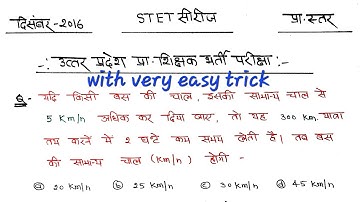 दिसंबर - 2016 STET सीरीज प्रा. स्तर
-: उत्तर प्रदेश प्रा. शिक्षक भर्ती परीक्षा :-
with very easy trick
Q - यदि किसी बस की चाल, इसकी सामान्य चाल से
5 Km/h अधिक कर दिया जाए, तो यह 300 km. यात्रा
तय करने में 2 घण्टे कम समय लेती है। तब बस
की सामान्य चाल (Km/h) होगी -
(a) 20 Km/h (b) 25 Km/h (c) 30 Km/h (d) 45 Km/h